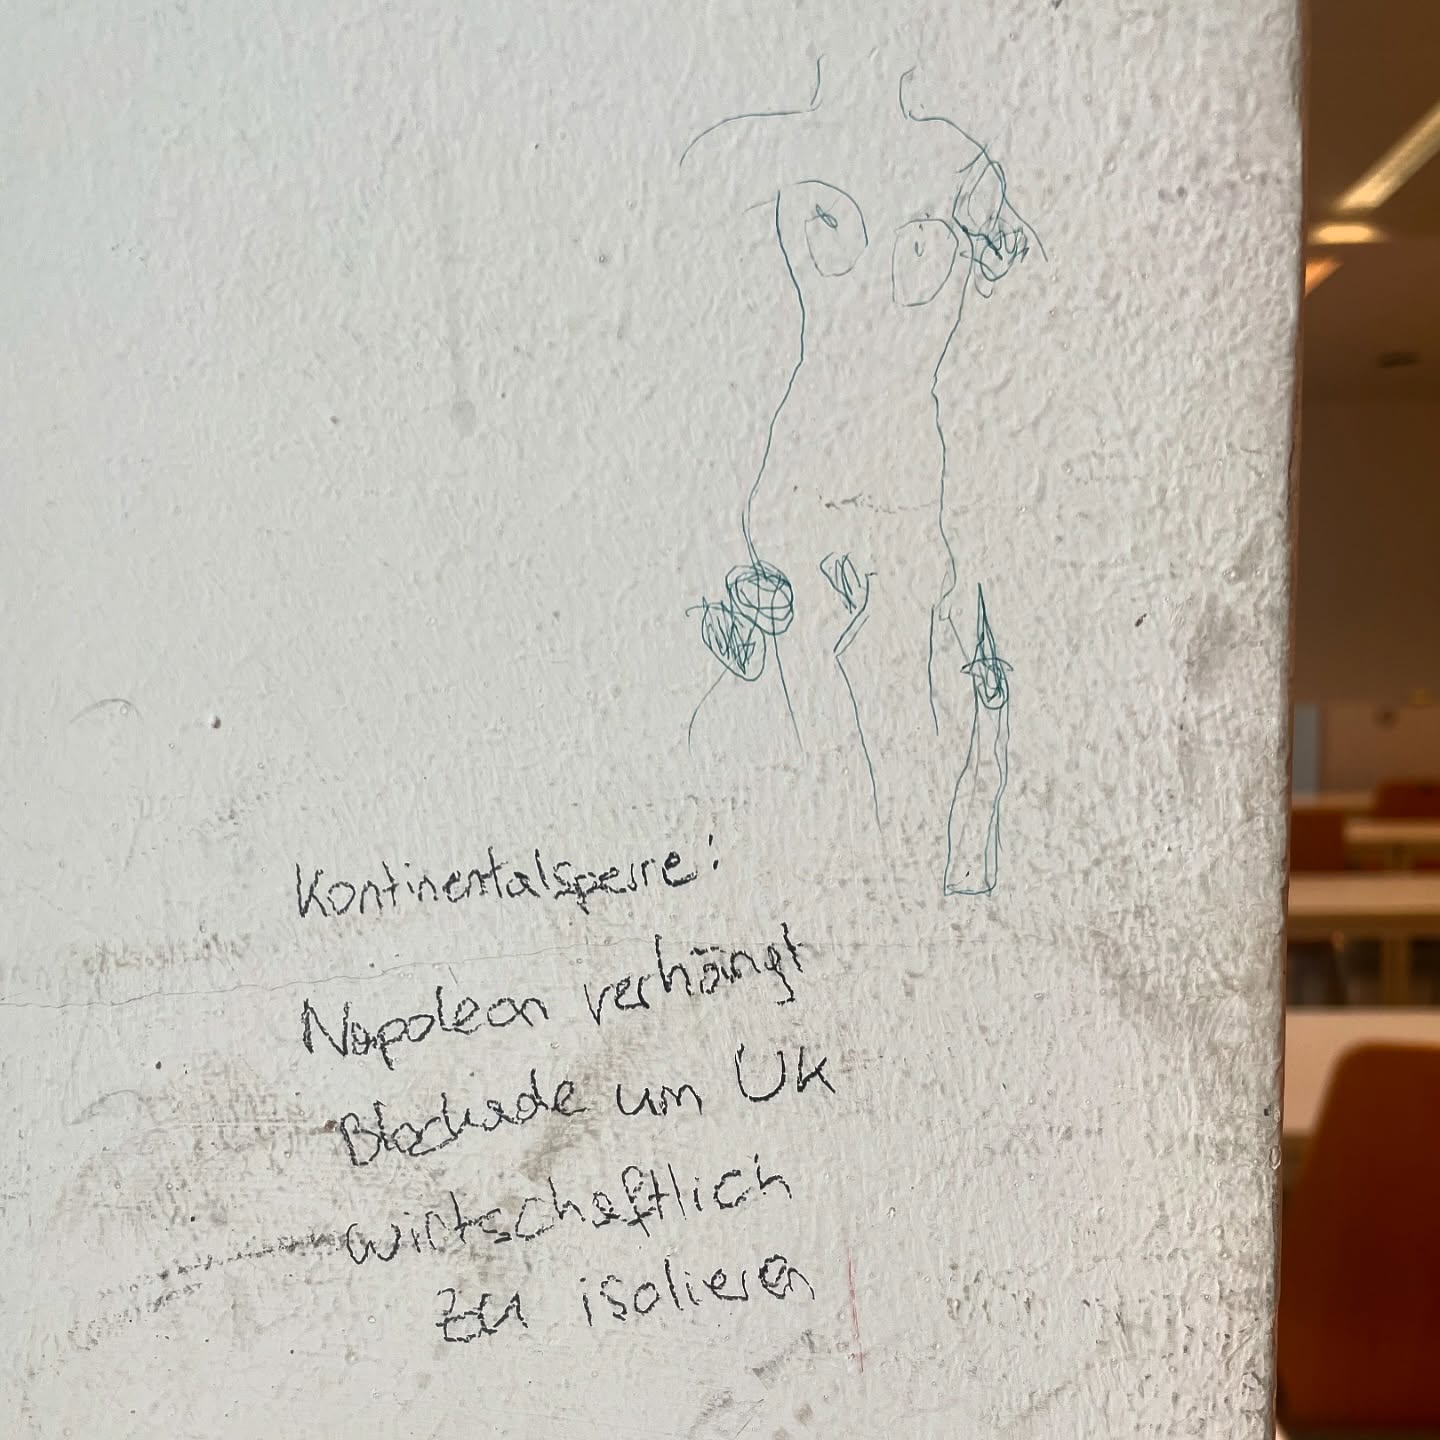 Kontinentalsperre:
Napoleon verhängt
Blockade um UK
wirtschaftlich
zu isolieren